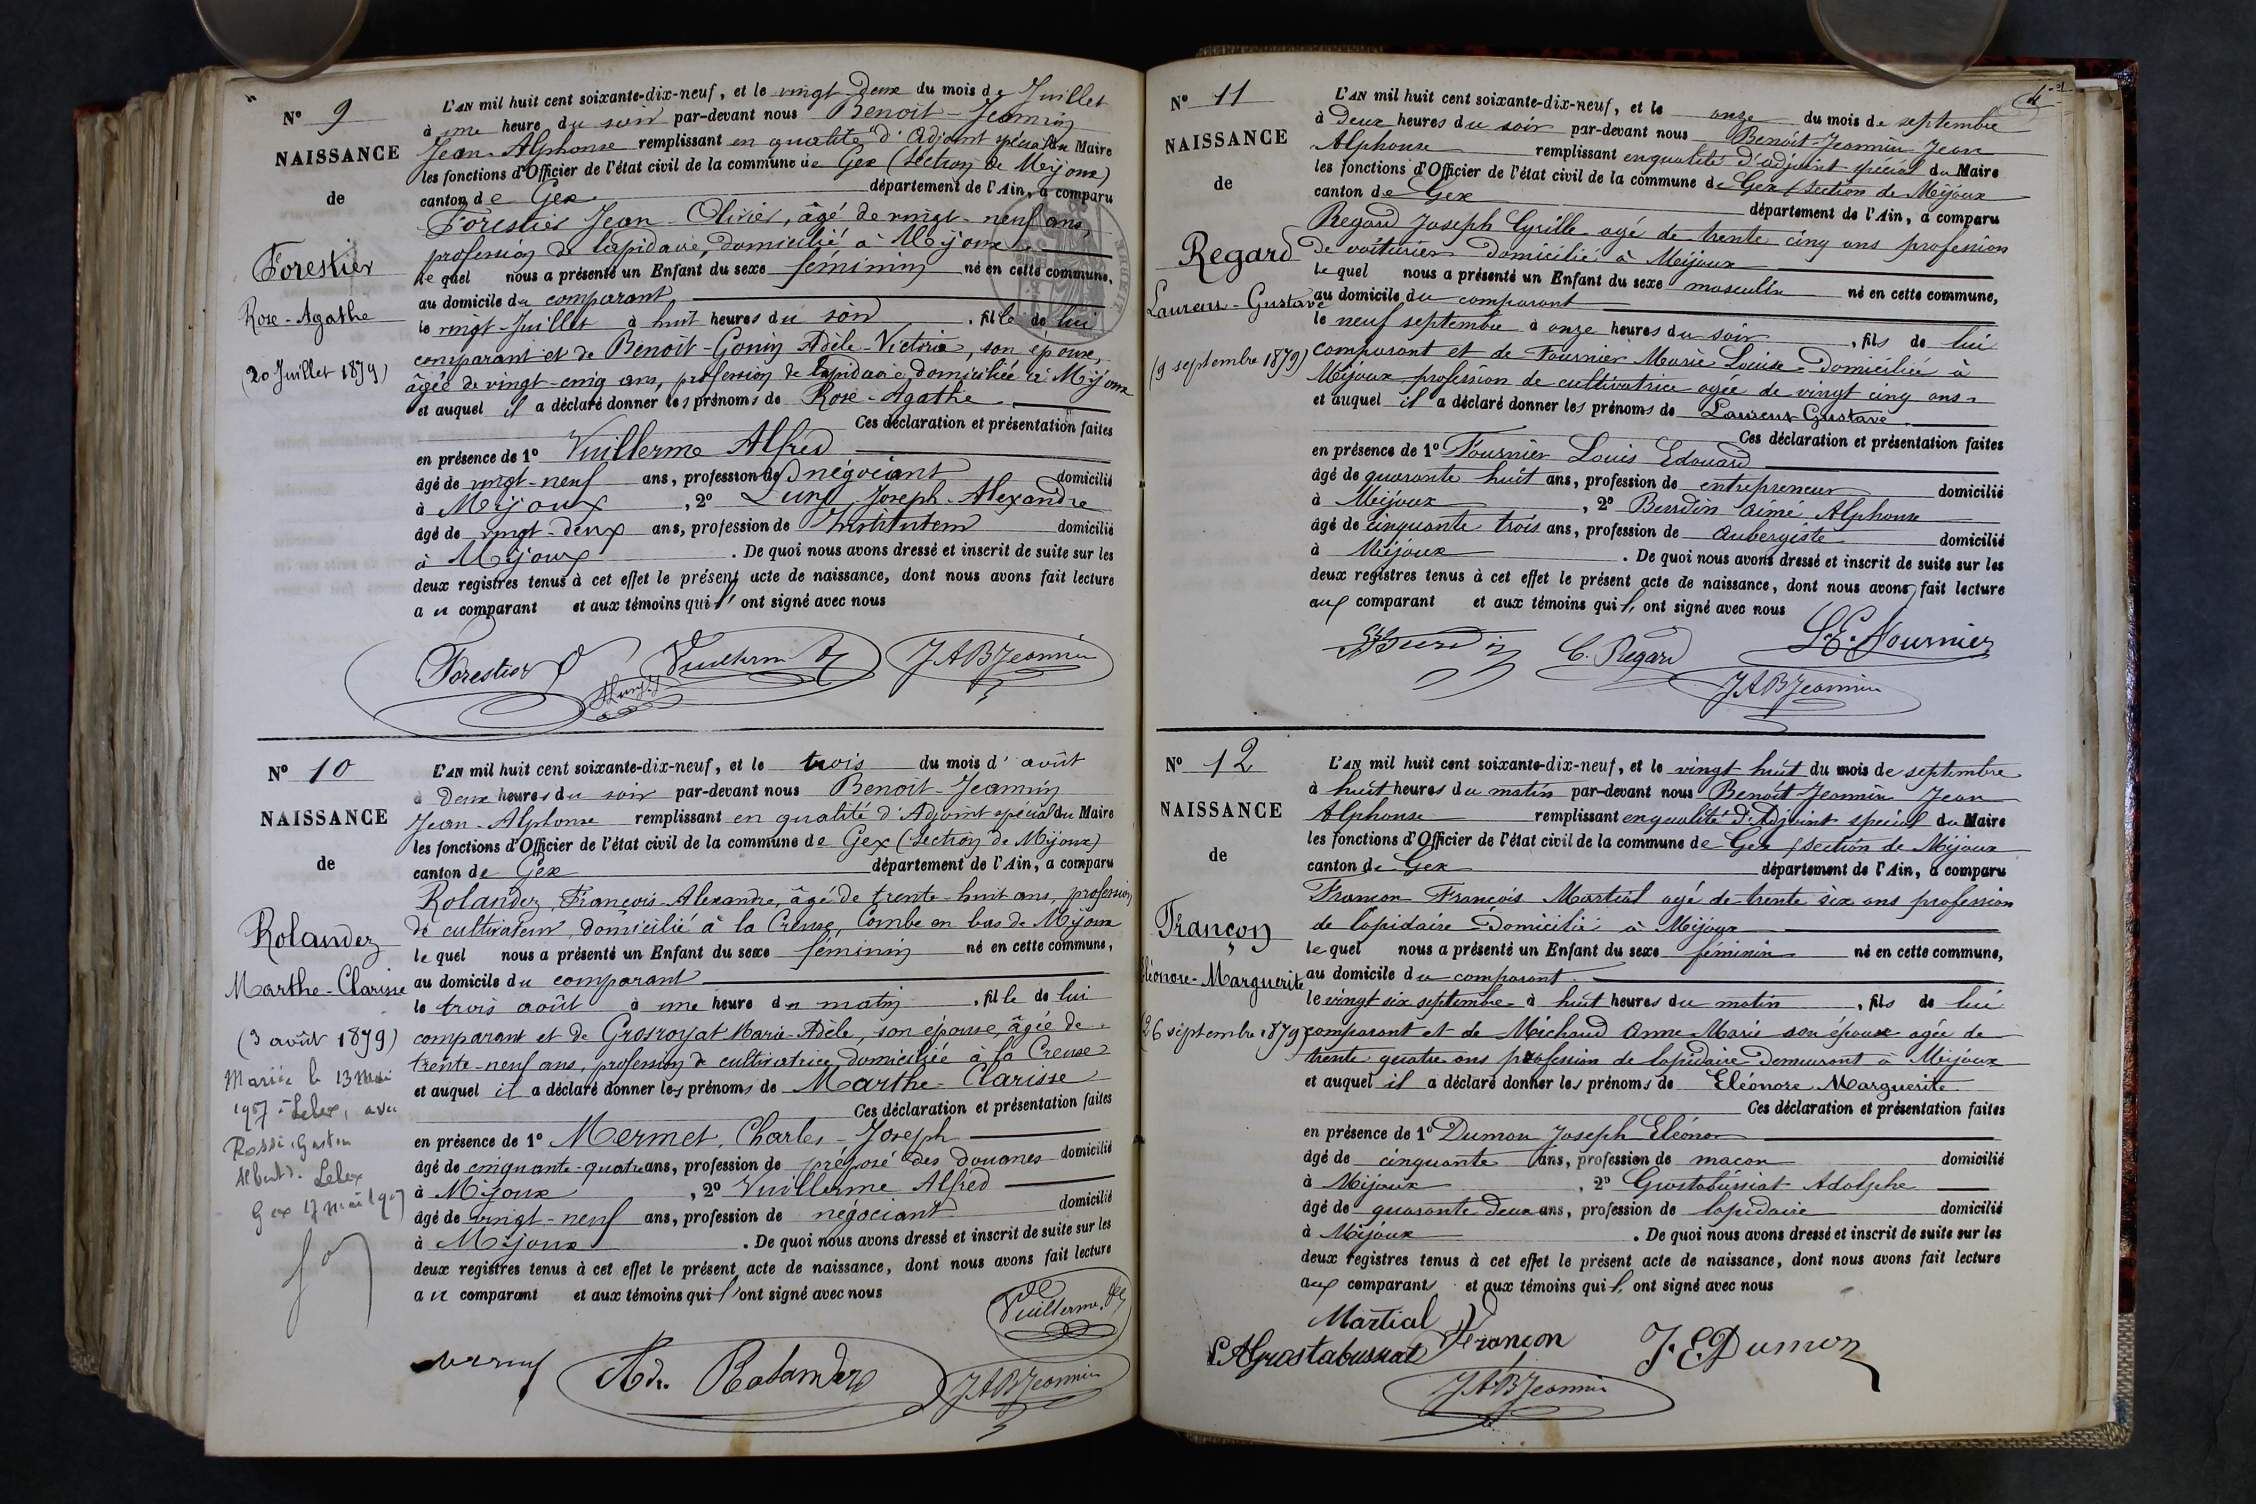 N° 9
NAISSANCE
de
Forestier
Rose-Agathe
(20 Juillet 1879)
L'AN mil huit cent soixante-dix-neuf, et le vingt-deux du mois de Juillet
à une heure du soir par-devant nous Benoit-Jeannin
Jean-Alphonse remplissant en qualité d'Adjoint spécial du Maire
les fonctions d'Officier de l'état civil de la commune de Gex (section de Mijoux)
canton de Gex département de l'Ain, a comparu
Forestier Jean-Olivier, âgé de vingt-neuf ans,
profession de lapidaire, domicilié à Mijoux
le quel nous a présenté un Enfant du sexe féminin né en cette commune,
au domicile du comparant
le vingt-Juillet à huit heures du soir, fille de lui
comparant et de Benoit-Gonin Adèle-Victoria, son épouse,
âgée de vingt-cinq ans, profession de lapidaire, domiciliée à Mijoux
et auquel il a déclaré donner les prénoms de Rose-Agathe
Ces déclaration et présentation faites
en présence de 1° Vuillerme Alfred
âgé de vingt-neuf ans, profession de négociant domicilié
à Mijoux, 2° Joseph-Alexandre
âgé de vingt-deux ans, profession de Instituteur domicilié
à Mijoux. De quoi nous avons dressé et inscrit de suite sur les
deux registres tenus à cet effet le présent acte de naissance, dont nous avons fait lecture
au comparant et aux témoins qui l'ont signé avec nous
Forestier O Vuillerme JABJeannin
N° 10
NAISSANCE
de
Rolandez
Marthe-Clarisse
(3 août 1879)
Mariée le 13 mai
1907 à Lelex, avec
Rossi Gaston
Albert d. Lelex
Gex 17 mai 1907
L'AN mil huit cent soixante-dix-neuf, et le trois du mois d'août
à deux heures du soir par-devant nous Benoit-Jeannin
Jean-Alphonse remplissant en qualité d'Adjoint spécial du Maire
les fonctions d'Officier de l'état civil de la commune de Gex (section de Mijoux)
canton de Gex département de l'Ain, a comparu
Rolandez, François-Alexandre, âgé de trente-huit ans, profession
de cultivateur, domicilié à la Creuse, Combe en bas de Mijoux
le quel nous a présenté un Enfant du sexe féminin né en cette commune,
au domicile du comparant
le trois août à une heure du matin, fille de lui
comparant et de Grosroyat Marie-Adèle, son épouse, âgée de
trente-neuf ans, profession de cultivatrice, domiciliée à la Creuse
et auquel il a déclaré donner les prénoms de Marthe-Clarisse
Ces déclaration et présentation faites
en présence de 1° Mermet, Charles-Joseph
âgé de cinquante-quatre ans, profession de préposé des douanes domicilié
à Mijoux, 2° Vuillerme Alfred
âgé de vingt-neuf ans, profession de négociant domicilié
à Mijoux. De quoi nous avons dressé et inscrit de suite sur les
deux registres tenus à cet effet le présent acte de naissance, dont nous avons fait lecture
au comparant et aux témoins qui l'ont signé avec nous
Vuillerme
Mermet Rolandez JABJeannin
N° 11
NAISSANCE
de
Regard
Laurent-Gustave
(9 septembre 1879)
L'AN mil huit cent soixante-dix-neuf, et le onze du mois de septembre
à Deux heures du soir par-devant nous Benoit-Jeannin Jean
Alphonse remplissant en qualité d'adjoint spécial du Maire
les fonctions d'Officier de l'état civil de la commune de Gex section de Mijoux
canton de Gex département de l'Ain, a comparu
Regard Joseph Cyrille agé de trente cinq ans profession
de voiturier domicilié à Mijoux
le quel nous a présenté un Enfant du sexe masculin né en cette commune,
au domicile du comparant
le neuf septembre à onze heures du soir, fils de lui
comparant et de Fournier Marie Louise Domiciliée à
Mijoux profession de cultivatrice agée de vingt cinq ans
et auquel il a déclaré donner les prénoms de Laurent Gustave
Ces déclaration et présentation faites
en présence de 1° Fournier Louis Edouard
âgé de quarante huit ans, profession de entrepreneur domicilié
à Mijoux, 2° aimé Alphonse
âgé de cinquante trois ans, profession de aubergiste domicilié
à Mijoux. De quoi nous avons dressé et inscrit de suite sur les
deux registres tenus à cet effet le présent acte de naissance, dont nous avons fait lecture
aux comparant et aux témoins qui l'ont signé avec nous
C. Regard L.E. Fournier
JABJeannin
N° 12
NAISSANCE
de
Françon
Eléonore-Marguerite
(26 septembre 1879)
L'AN mil huit cent soixante-dix-neuf, et le vingt huit du mois de septembre
à huit heures du matin par-devant nous Benoit-Jeannin Jean
Alphonse remplissant en qualité d'Adjoint spécial du Maire
les fonctions d'Officier de l'état civil de la commune de Gex section de Mijoux
canton de Gex département de l'Ain, a comparu
Françon François Martial agé de trente six ans profession
de lapidaire Domicilié à Mijoux
le quel nous a présenté un Enfant du sexe féminin né en cette commune,
au domicile du comparant
le vingt six septembre à huit heures du matin, fils de lui
comparant et de Michaud Anne Marie son épouse agée de
trente quatre ans profession de lapidaire Demeurant à Mijoux
et auquel il a déclaré donner les prénoms de Eléonore Marguerite
Ces déclaration et présentation faites
en présence de 1° Dumon Joseph Eléonor
âgé de cinquante ans, profession de macon domicilié
à Mijoux, 2° Grostabussiat Adolphe
âgé de quarante deux ans, profession de lapidaire domicilié
à Mijoux. De quoi nous avons dressé et inscrit de suite sur les
deux registres tenus à cet effet le présent acte de naissance, dont nous avons fait lecture
aux comparants et aux témoins qui l'ont signé avec nous
Martial Françon
Grostabussiat J.E. Dumon
JABJeannin